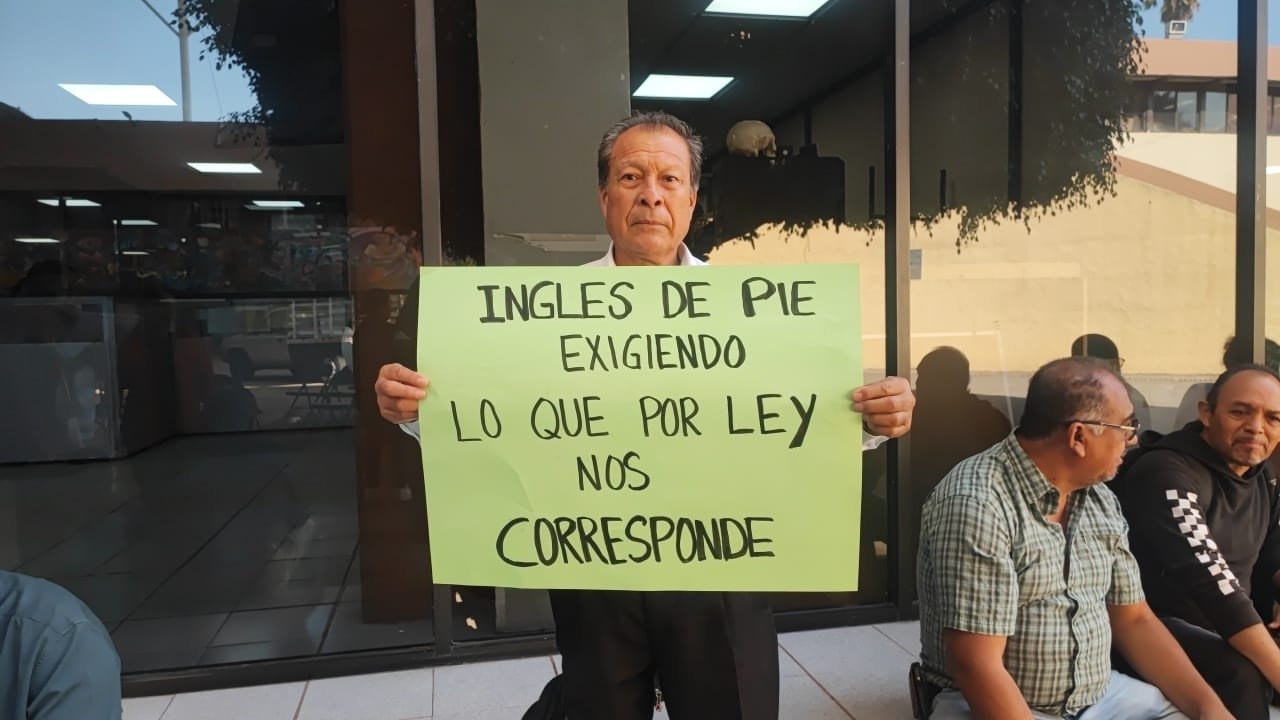 INGLES DE PIE
EXIGIENDO
LO QUE POR LEY
NOS
CORRESPONDE